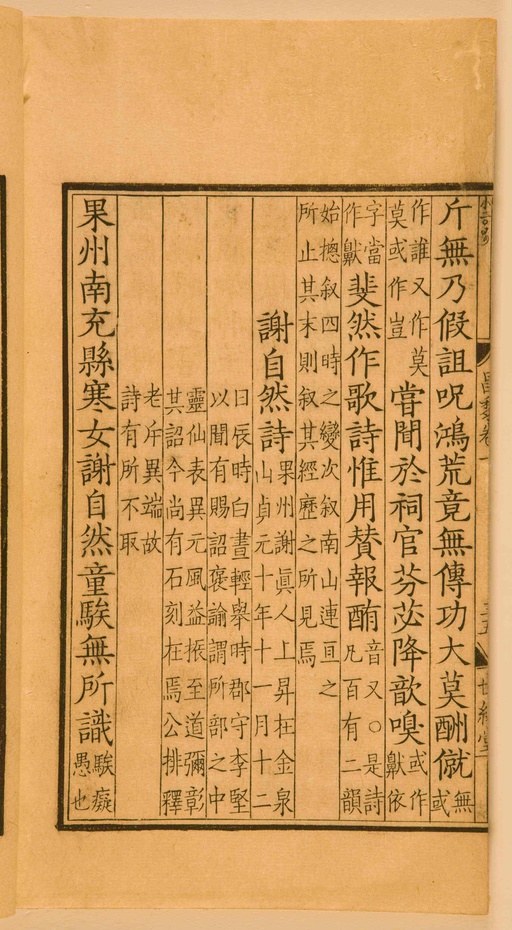 昌黎卷一
世綵堂
斤無乃假詛呪鴻荒竟無傳功大莫酬僦無或
作誰又作莫莫或作豈嘗聞於祠官芬苾降歆嗅或作齅依
字當作齅斐然作歌詩惟用贊報酭音又○是詩凡百有二韻
始揔叙四時之變次叙南山連亘之
所止其末則叙其經歷之所見焉
謝自然詩果州謝眞人上昇在金泉山貞元十年十一月十二
日辰時白晝輕舉時郡守李堅
以聞有賜詔褒諭謂所部之中
靈仙表異元風益振至道彌彰
其詔今尚有石刻在焉公排釋
老斥異端故
詩有所不取
果州南充縣寒女謝自然童騃無所識騃癡愚也